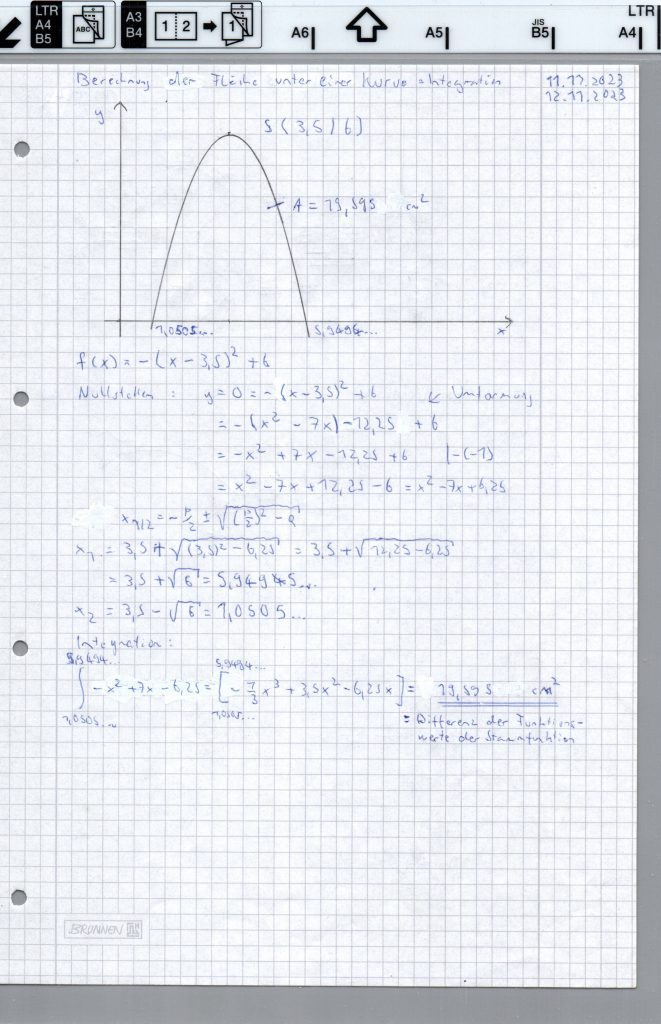 LTR
A4
B5
ABC
A3
B4
1 2
1
A6
A5
JIS
B5
LTR
A4
Berechnung der Fläche unter einer Kurve = Integration
11.11.2023
12.11.2023
y
S (3,5 / 6)
A = 19,595 cm²
1,0505...
5,9494...
x
f(x) = -(x - 3,5)² + 6
Nullstellen : y = 0 = -(x - 3,5)² + 6 ↙ Umformung
= -(x² - 7x) - 12,25 + 6
= -x² + 7x - 12,25 + 6 |-(-1)
= x² - 7x + 12,25 - 6 = x² - 7x + 6,25
x1/2 = -p/2 ± √((p/2)² - q)
x1 = 3,5 + √((3,5)² - 6,25) = 3,5 + √(12,25 - 6,25)
= 3,5 + √6 = 5,94945...
x2 = 3,5 - √6 = 1,0505...
Integration :
5,9494... 5,9494...
∫ -x² + 7x - 6,25 = [-1/3 x³ + 3,5x² - 6,25x] = 19,595 cm²
1,0505... 1,0505...
= Differenz der Funktions-
werte der Stammfunktion
BRUNNEN